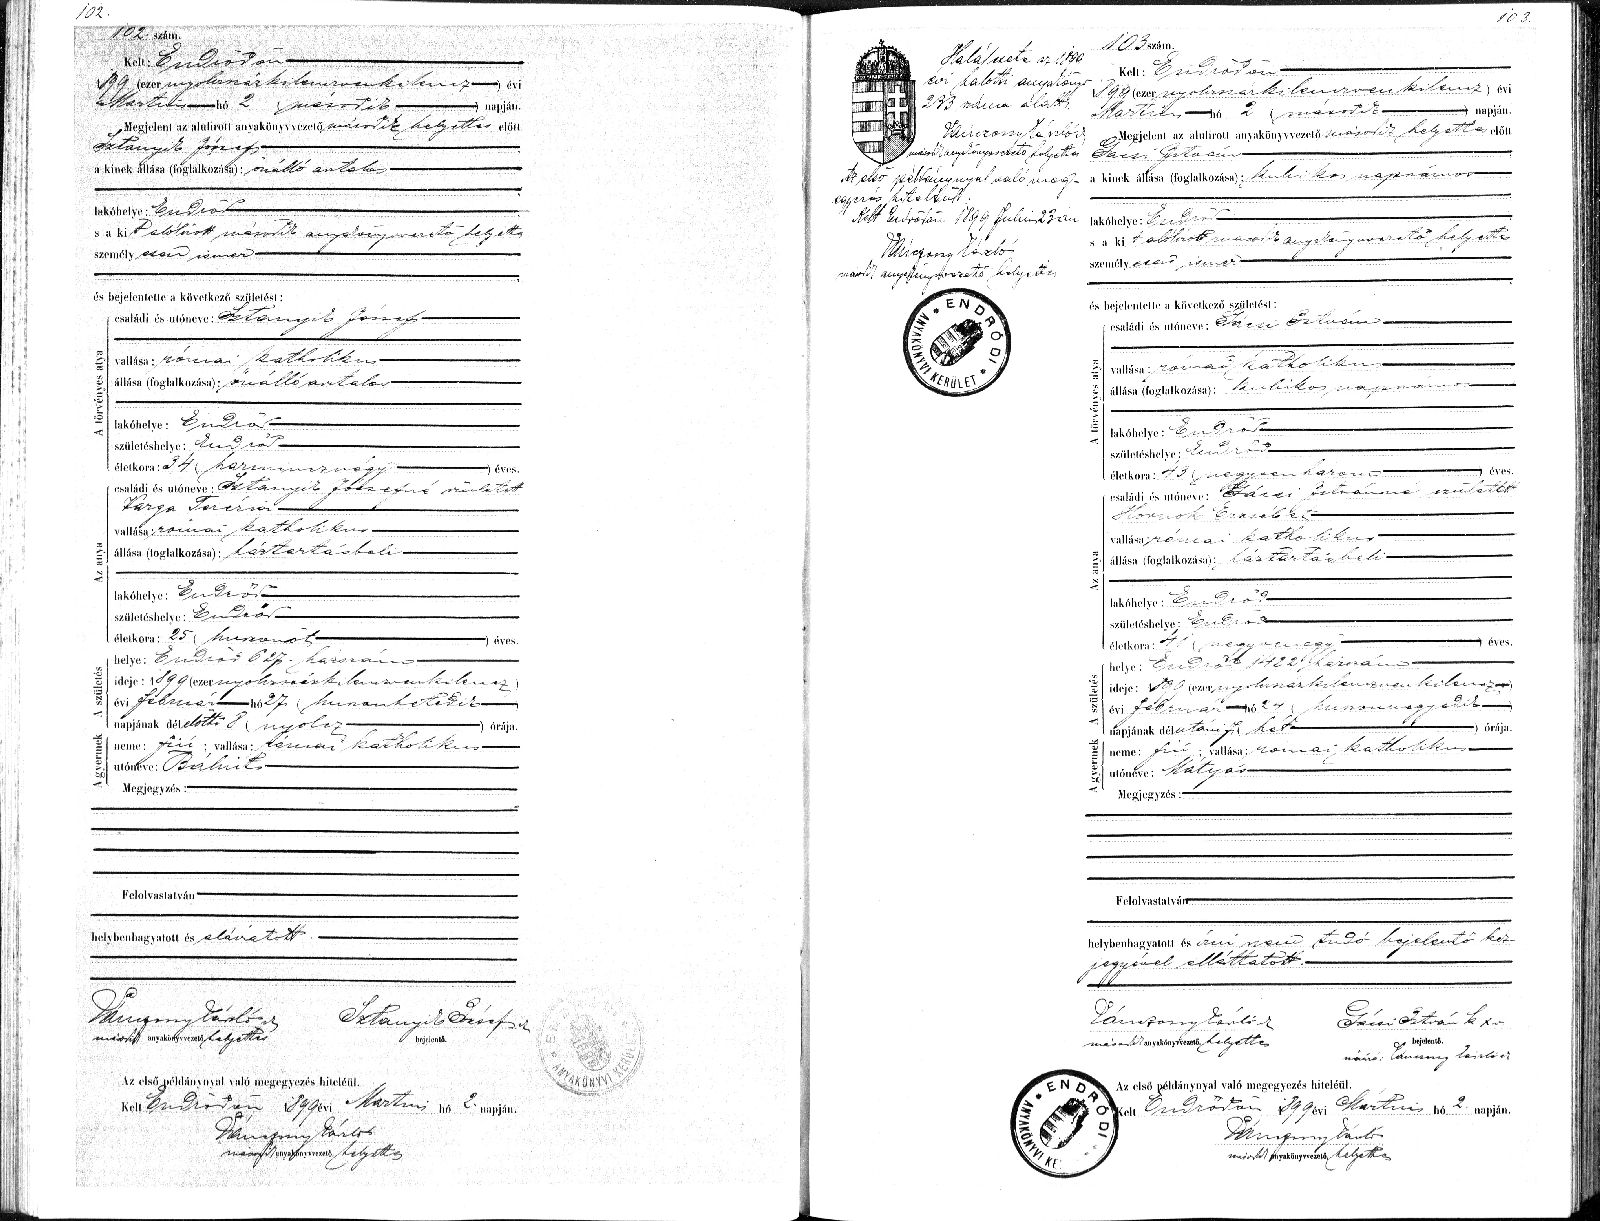 102.
102. szám.
Kelt: Endrődön
1899 (ezer nyolczszázkilenczvenkilencz) évi
Martius hó 2 (második) napján.
Megjelent az alulirott anyakönyvvezető második helyettes előtt
Sztanyik József
a kinek állása (foglalkozása): önálló
lakóhelye: Endrőd
s a kit alólirott második anyakönyvvezető helyettes
személyesen ismer
és bejelentette a következő születést:
A törvényes atya
családi és utóneve: Sztanyik József
vallása: római katholikus
állása (foglalkozása): önálló
lakóhelye: Endrőd
születéshelye: Endrőd
életkora: 34 (harmincznégy) éves.
Az anya
családi és utóneve: Sztanyik Józsefné született
Varga Terézia
vallása: római katholikus
állása (foglalkozása): háztartásbeli
lakóhelye: Endrőd
születéshelye: Endrőd
életkora: 25 (huszonöt) éves.
A születés
helye: Endrőd 627. házszám
ideje: 1899 (ezer nyolczszázkilenczvenkilencz)
évi február hó 27 (huszonhetedik)
napjának délelőtti 8 (nyolcz) órája.
A gyermek
neme: fiú; vallása: római katholikus
utóneve: Bálint
Megjegyzés:
Felolvastatván
helybenhagyatott és aláiratott.
Vánczony László
második anyakönyvvezető helyettes
Sztanyik József
bejelentő.
ANYAKÖNYVI KERÜLET
Az első példánynyal való megegyezés hiteléül.
Kelt Endrődön 1899 évi Martius hó 2. napján.
Vánczony László
második anyakönyvvezető helyettes
103.
Halálesete az 1899
évi halotti anyakönyv
293 száma alatt.
Vánczony László
második anyakönyvvezető helyettes
Az első példánynyal való meg-
egyezés hiteléül:
Kelt Endrődön 1899 Julius 23-án
Vánczony László
második anyakönyvvezető helyettes
ENDRŐDI ANYAKÖNYVI KERÜLET
103 szám.
Kelt: Endrődön
1899 (ezer nyolczszázkilenczvenkilencz) évi
Martius hó 2 (második) napján.
Megjelent az alulirott anyakönyvvezető második helyettes előtt
Gácsi István
a kinek állása (foglalkozása): kubikos napszámos
lakóhelye: Endrőd
s a kit alólirott második anyakönyvvezető helyettes
személyesen ismer
és bejelentette a következő születést:
A törvényes atya
családi és utóneve: Gácsi István
vallása: római katholikus
állása (foglalkozása): kubikos napszámos
lakóhelye: Endrőd
születéshelye: Endrőd
életkora: 43 (negyvenhárom) éves.
Az anya
családi és utóneve: Gácsi Istvánné született
Hornok Erzsébet
vallása: római katholikus
állása (foglalkozása): háztartásbeli
lakóhelye: Endrőd
születéshelye: Endrőd
életkora: 41 (negyvenegy) éves.
A születés
helye: Endrőd 1422 házszám
ideje: 1899 (ezer nyolczszázkilenczvenkilencz)
évi február hó 24 (huszonnegyedik)
napjának délutáni 7 (hét) órája.
A gyermek
neme: fiú; vallása: római katholikus
utóneve: Mátyás
Megjegyzés:
Felolvastatván
helybenhagyatott és irni nem tudó bejelentő kéz-
jegyével elláttatott.
Vánczony László
második anyakönyvvezető helyettes
Gácsi István
bejelentő.
Vánczony László
ENDRŐDI ANYAKÖNYVI KE
Az első példánynyal való megegyezés hiteléül.
Kelt Endrődön 1899 évi Martius hó 2. napján.
Vánczony László
második anyakönyvvezető helyettes